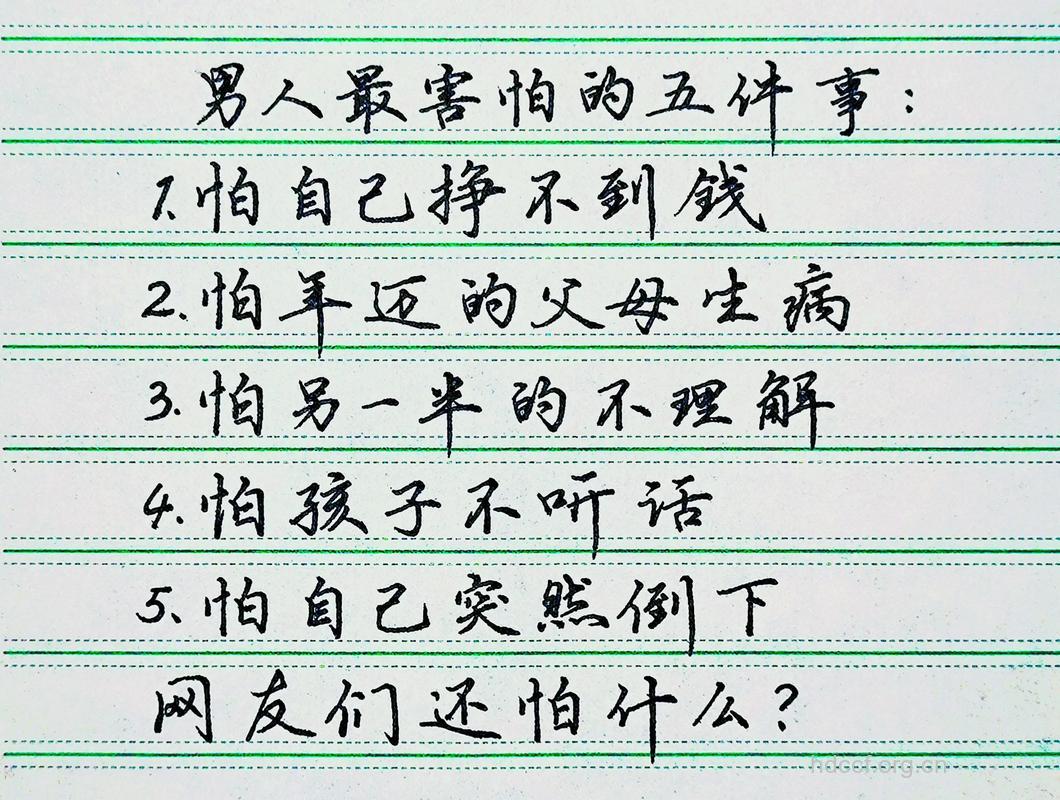 男人最害怕的五件事：
1.怕自己挣不到錢
2.怕年迈的父母生病
3.怕另一半的不理解
4.怕孩子不听话
5.怕自己突然倒下
网友们还怕什么？
hdccf.org.cn